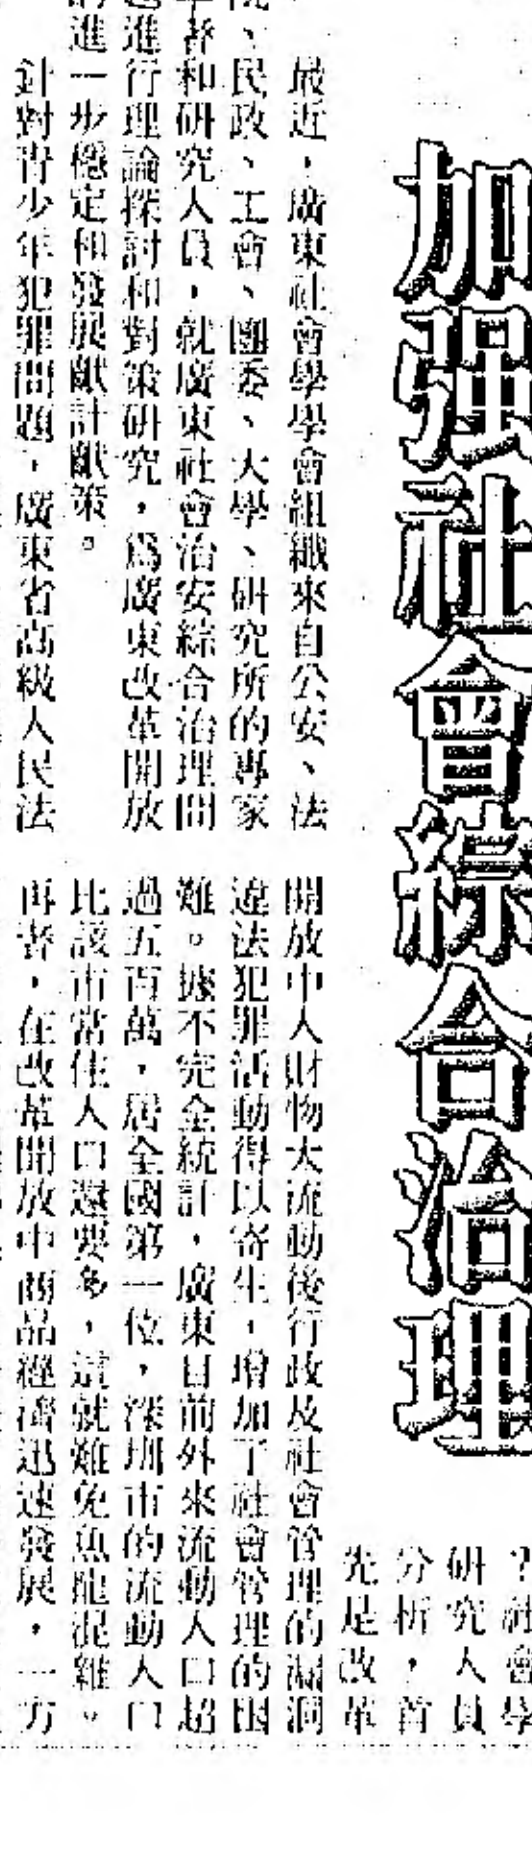 加强社會綜合治理
最近，廣東社會學學會組織來自公安、法
、民政、工會、團委、大學、研究所的專家
者和研究人員，就廣東社會治安綜合治理問
進行理論探討和對策研究，爲廣東改革開放
進一步穩定和發展獻計獻策。
針對青少年犯罪問題，廣東省高級人民法
？社會學
研究人員
分析，首
先是改革
開放中人財物大流動後行政及社會管理的漏洞
違法犯罪活動得以寄生，增加了社會管理的困
難。據不完全統計，廣東目前外來流動人口超
過五百萬，居全國第一位，深圳市的流動人口
比該市常住人口還要多，這就難免魚龍混雜。
再者，在改革開放中商品經濟迅速發展，一方